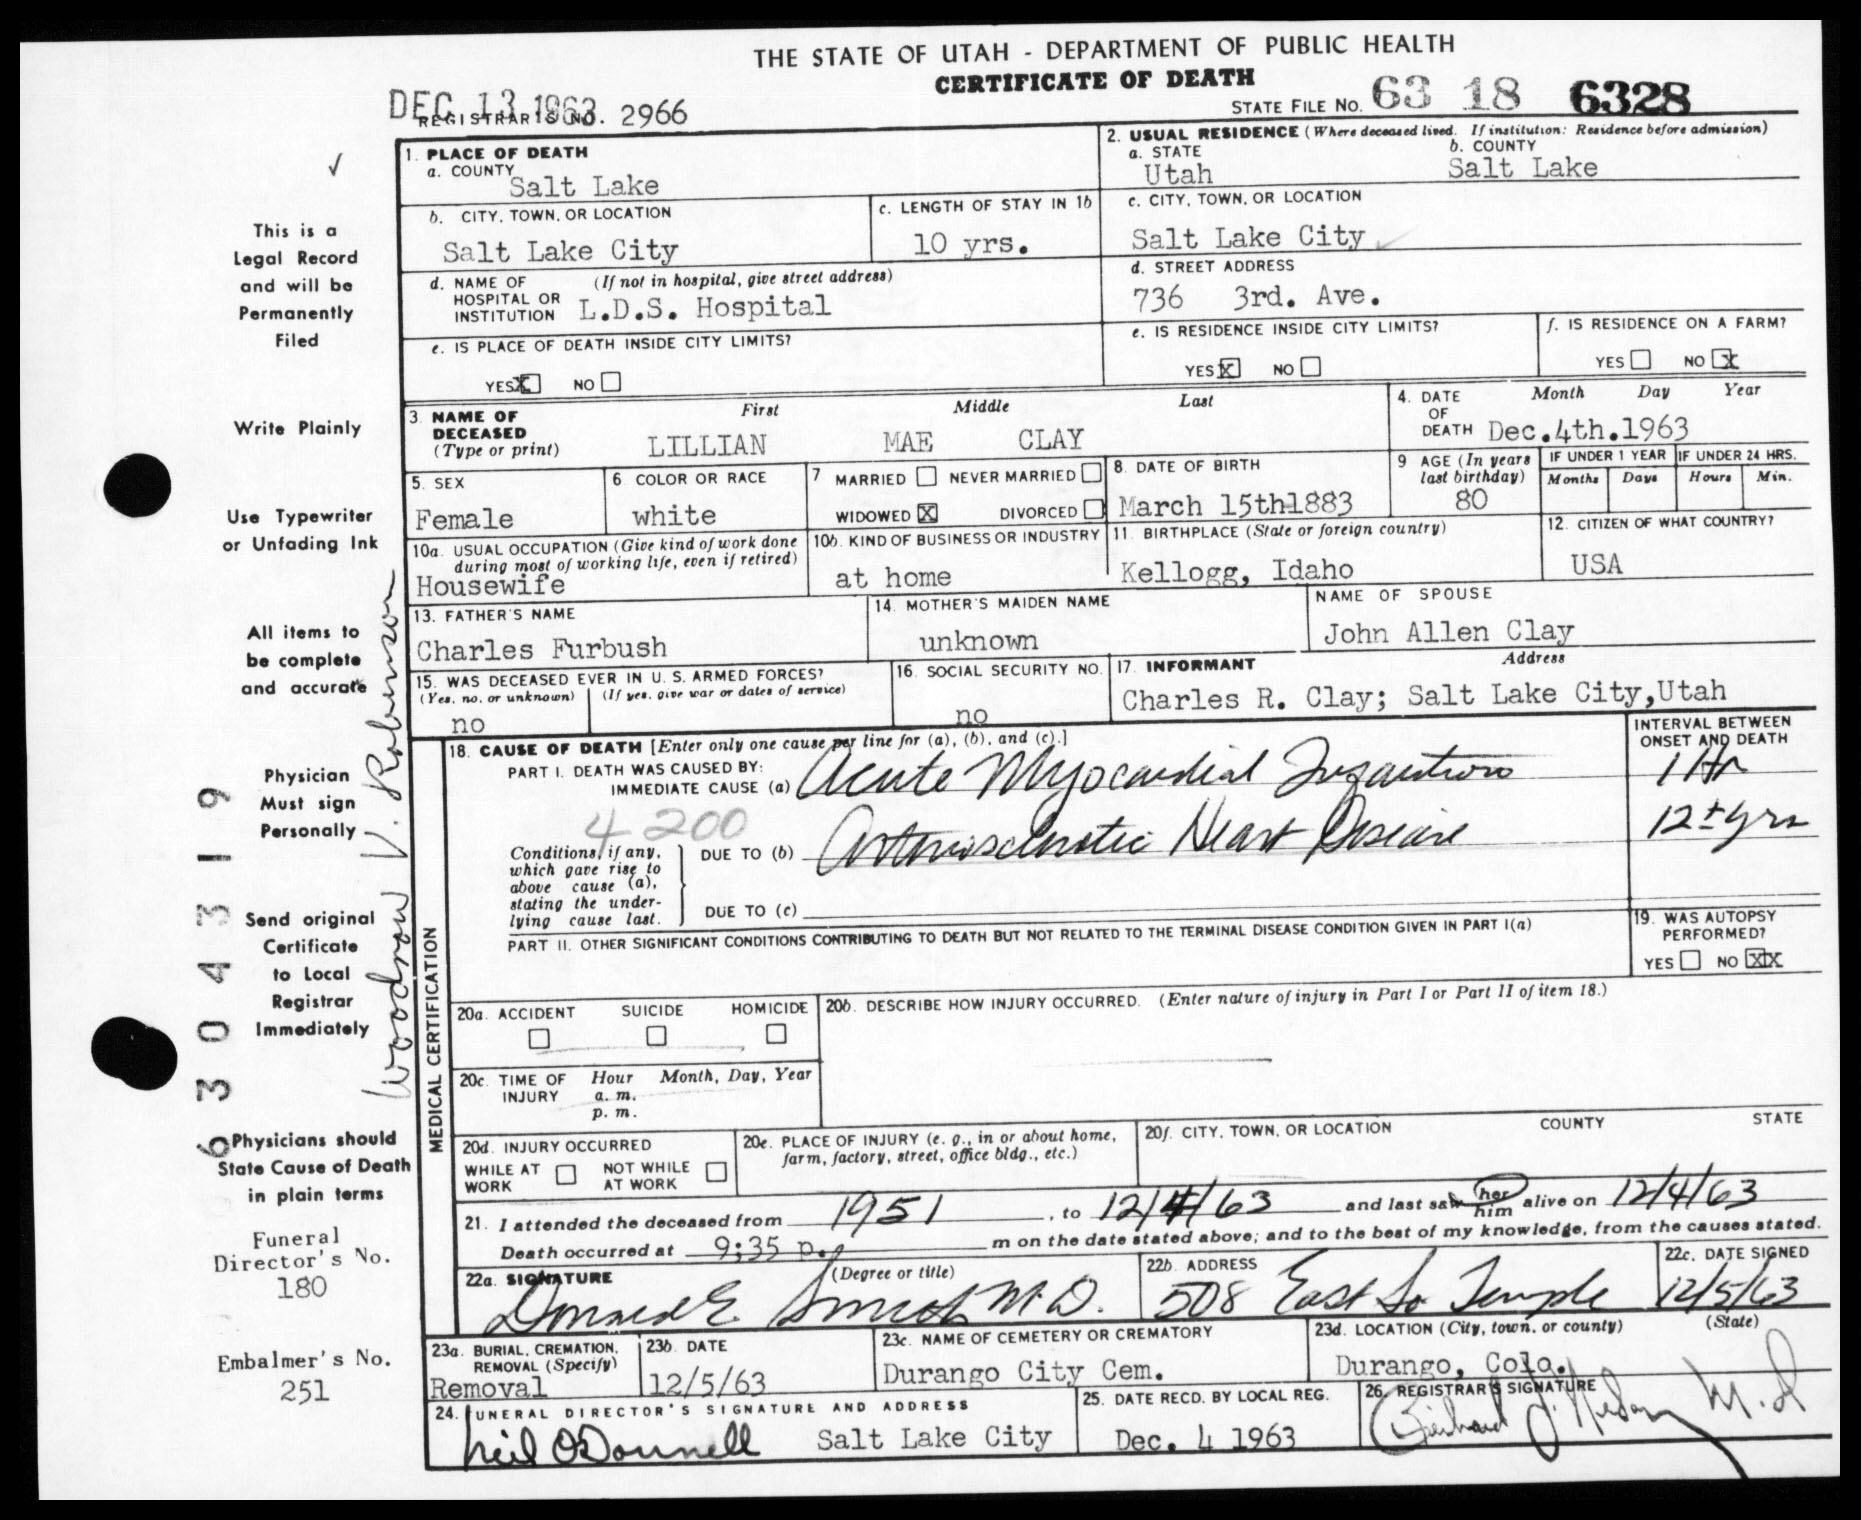 THE STATE OF UTAH - DEPARTMENT OF PUBLIC HEALTH
CERTIFICATE OF DEATH
DEC 13 1963
REGISTRAR'S NO. 2966
STATE FILE NO. 63 18 6328
1. PLACE OF DEATH
a. COUNTY
Salt Lake
2. USUAL RESIDENCE (Where deceased lived. If institution: Residence before admission)
a. STATE
Utah
b. COUNTY
Salt Lake
b. CITY, TOWN, OR LOCATION
Salt Lake City
c. LENGTH OF STAY IN 1b
10 yrs.
c. CITY, TOWN, OR LOCATION
Salt Lake City
d. NAME OF HOSPITAL OR INSTITUTION (If not in hospital, give street address)
L.D.S. Hospital
d. STREET ADDRESS
736 3rd. Ave.
e. IS PLACE OF DEATH INSIDE CITY LIMITS?
YES X NO
e. IS RESIDENCE INSIDE CITY LIMITS?
YES X NO
f. IS RESIDENCE ON A FARM?
YES NO X
3. NAME OF DECEASED (Type or print)
First Middle Last
LILLIAN MAE CLAY
4. DATE OF DEATH
Month Day Year
Dec.4th.1963
5. SEX
Female
6. COLOR OR RACE
white
7 MARRIED NEVER MARRIED
WIDOWED X DIVORCED
8. DATE OF BIRTH
March 15th1883
9 AGE (In years last birthday)
80
IF UNDER 1 YEAR
Months Days
IF UNDER 24 HRS.
Hours Min.
10a. USUAL OCCUPATION (Give kind of work done during most of working life, even if retired)
Housewife
10b. KIND OF BUSINESS OR INDUSTRY
at home
11. BIRTHPLACE (State or foreign country)
Kellogg, Idaho
12. CITIZEN OF WHAT COUNTRY?
USA
13. FATHER'S NAME
Charles Furbush
14. MOTHER'S MAIDEN NAME
unknown
NAME OF SPOUSE
John Allen Clay
15. WAS DECEASED EVER IN U. S. ARMED FORCES?
(Yes, no, or unknown) (If yes, give war or dates of service)
no
16. SOCIAL SECURITY NO.
no
17. INFORMANT Address
Charles R. Clay; Salt Lake City,Utah
MEDICAL CERTIFICATION
18. CAUSE OF DEATH [Enter only one cause per line for (a), (b), and (c).]
INTERVAL BETWEEN ONSET AND DEATH
PART I. DEATH WAS CAUSED BY:
IMMEDIATE CAUSE (a) Acute Myocardial Infarction
1 Hr
4200
Conditions, if any, which gave rise to above cause (a), stating the underlying cause last.
DUE TO (b) Arteriosclerotic Heart Disease
12± yrs
DUE TO (c)
PART II. OTHER SIGNIFICANT CONDITIONS CONTRIBUTING TO DEATH BUT NOT RELATED TO THE TERMINAL DISEASE CONDITION GIVEN IN PART I(a)
19. WAS AUTOPSY PERFORMED?
YES NO XX
20a. ACCIDENT SUICIDE HOMICIDE
20b. DESCRIBE HOW INJURY OCCURRED. (Enter nature of injury in Part I or Part II of item 18.)
20c. TIME OF INJURY Hour Month, Day, Year
a. m.
p. m.
20d. INJURY OCCURRED
WHILE AT WORK NOT WHILE AT WORK
20e. PLACE OF INJURY (e. g., in or about home, farm, factory, street, office bldg., etc.)
20f. CITY, TOWN, OR LOCATION COUNTY STATE
21. I attended the deceased from 1951, to 12/4/63 and last saw her him alive on 12/4/63
Death occurred at 9:35 p. m on the date stated above; and to the best of my knowledge, from the causes stated.
22a. SIGNATURE (Degree or title)
Donald E. Smith M.D.
22b. ADDRESS
508 East So Temple
22c. DATE SIGNED
12/5/63
23a. BURIAL, CREMATION, REMOVAL (Specify)
Removal
23b. DATE
12/5/63
23c. NAME OF CEMETERY OR CREMATORY
Durango City Cem.
23d. LOCATION (City, town, or county) (State)
Durango, Colo.
24. FUNERAL DIRECTOR'S SIGNATURE AND ADDRESS
Neil O'Donnell Salt Lake City
25. DATE RECD. BY LOCAL REG.
Dec. 4 1963
26. REGISTRAR'S SIGNATURE
M.D
This is a
Legal Record
and will be
Permanently
Filed
Write Plainly
Use Typewriter
or Unfading Ink
All items to
be complete
and accurate
Physician
Must sign
Personally
Send original
Certificate
to Local
Registrar
Immediately
Physicians should
State Cause of Death
in plain terms
Funeral
Director's No.
180
Embalmer's No.
251
Woodrow V. Robinson
6304319